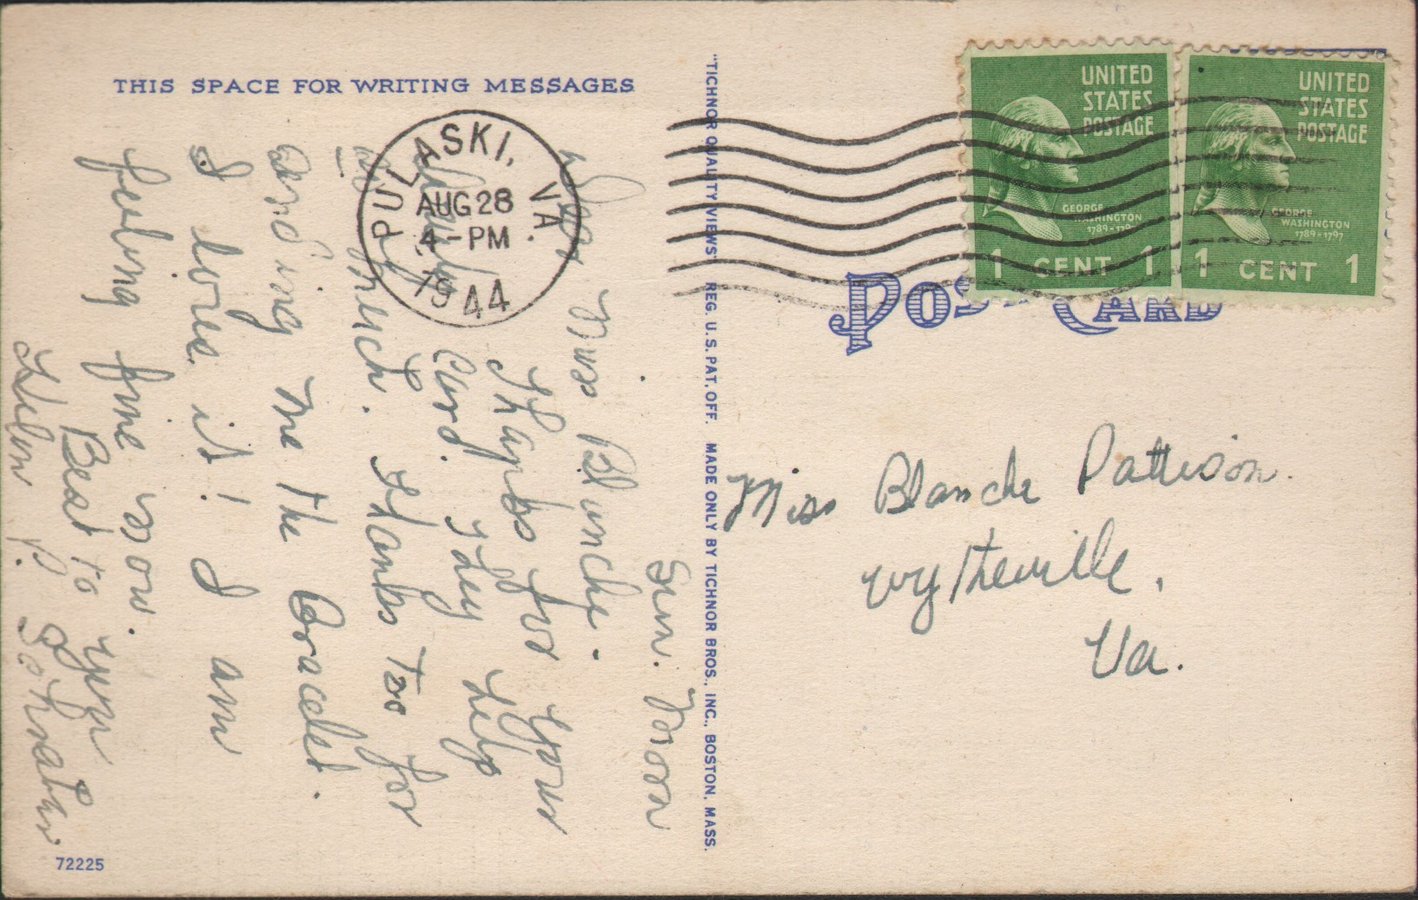 THIS SPACE FOR WRITING MESSAGES
Sun. Noon
Dear Miss Blanche.
Thanks for your
card. They help
so much. Thanks too for
me the bracelet.
I love it! I am
feeling fine now.
Best to you
Helen P.
72225
"TICHNOR QUALITY VIEWS" REG. U.S. PAT. OFF. MADE ONLY BY TICHNOR BROS., INC., BOSTON, MASS.
PULASKI, VA.
AUG 28
4-PM
1944
UNITED
STATES
POSTAGE
GEORGE
WASHINGTON
1789-179
1 CENT 1
UNITED
STATES
POSTAGE
GEORGE
WASHINGTON
1789-1797
1 CENT 1
POST CARD
Miss Blanche Pattison.
Wytheville,
Va.